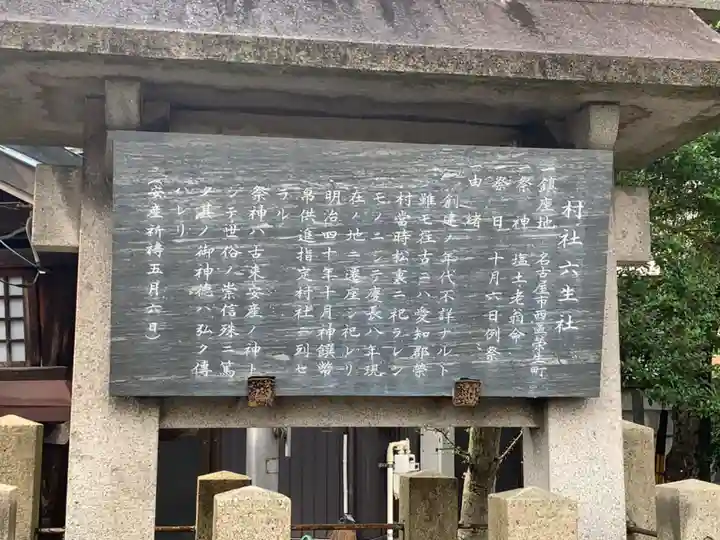 村社六生社
一鎮座地 名古屋市西區榮生町
一祭神 塩土老翁命
一祭日 十月六日例祭
一由緒
創建ノ年代不詳ナルト
雖モ往古ニハ愛知郡榮
村當時松裏ニ祀ラレシ
モノニシテ慶長八年現
在ノ地ニ遷座シ祀レリ
明治四十年十月神饌幣
帛供進指定村社ニ列セ
ラル
祭神ハ古来安産ノ神ト
シテ世俗ノ崇信殊ニ篤
ク其ノ御神徳ハ弘ク傳
ハレリ
(安産祈祷五月六日)